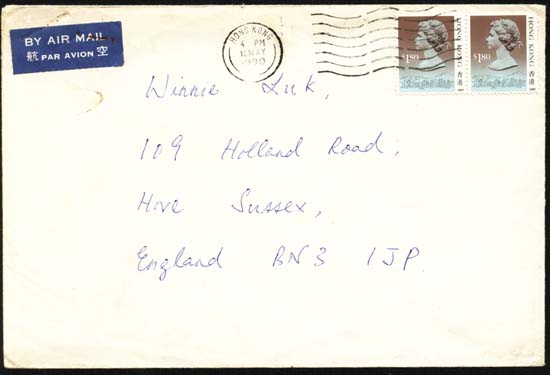 BY AIR MAIL
航 PAR AVION 空
HONG KONG
4 PM
16 MAY
1990
$1.80
HONG KONG 香港
$1.80
HONG KONG 香港
Winnie Luk,
109 Holland Road,
Hove Sussex,
England BN3 1JP.